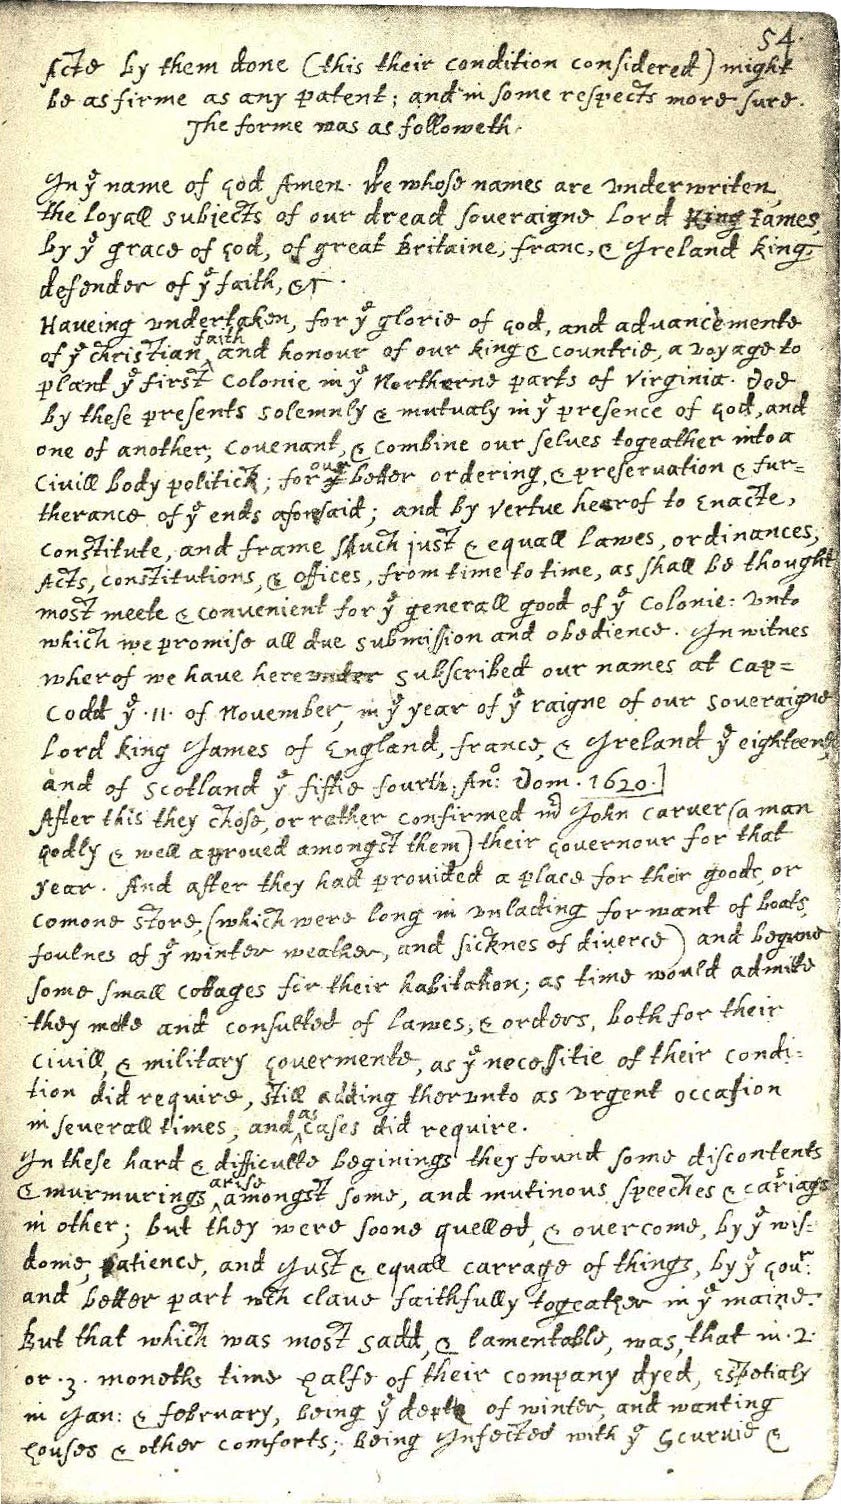 54.
Acts by them done (this their condition considered) might
be as firme as any patent; and in some respects more sure.
The forme was as followeth.
In yᵉ name of God Amen. We whose names are vnderwriten,
the loyall subjects of our dread soveraigne Lord King James,
by yᵉ grace of God, of great Britaine, franc, & Ireland king,
defender of yᵉ faith, &c.
Haveing vndertaken, for yᵉ glorie of God, and advancemente
of yᵉ christian faith and honour of our king & countrie, a voyage to
plant yᵉ first colonie in yᵉ Northerne parts of Virginia. Doe
by these presents solemnly & mutualy in yᵉ presence of God, and
one of another, covenant, & combine our selves togeather into a
Civill body politick; for our better ordering, & preservation & fur=
therance of yᵉ ends aforesaid; and by vertue hearof to Enacte,
constitute, and frame shuch just & equall lawes, ordinances,
Acts, constitutions, & offices, from time to time, as shall be thought
most meete & convenient for yᵉ generall good of yᵉ Colonie: vnto
which we promise all due submission and obedience. In witnes
wherof we have hereunder subscribed our names at Cap=
Codd yᵉ .11. of November, in yᵉ year of yᵉ raigne of our soveraigne
Lord King James of England, france, & Ireland yᵉ eighteenth
and of Scotland yᵉ fiftie fourth. Anº: Dom. 1620.]
After this they chose, or rather confirmed mʳ John Carver (a man
godly & well approved amongst them) their Governour for that
year. And after they had provided a place for their goods, or
comone store, (which were long in vnlading for want of boats,
foulnes of yᵉ winter weather, and sicknes of diverce) and begune
some small cottages for their habitation; as time would admitte
they mette and consulted of lawes, & orders, both for their
civill, & military Govermente, as yᵉ necessitie of their condi=
tion did require, still adding thervnto as vrgent occasion
in severall times, and as cases did require.
In these hard & difficulte beginings they found some discontents
& murmurings arise amongst some, and mutinous speeches & cariags
in other; but they were soone quelled, & overcome, by yᵉ wis=
dome, patience, and Just & equall carrage of things, by yᵉ Govʳ:
and better part wᶜʰ clave faithfully togeather in yᵉ maine.
But that which was most sadd, & lamentable, was, that in .2.
or .3. moneths time halfe of their company dyed, espetialy
in Jan: & february, being yᵉ depth of winter, and wanting
houses & other comforts; being Infected with yᵉ Scurvie &